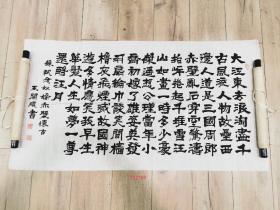 大江東去浪淘盡千
古風流人物故壘西
邊人道是三國周郎
赤壁亂石穿空驚濤
拍岸捲起千堆雪江
山如畫一時多少豪
傑遙想公瑾當年小
喬初嫁了雄姿英發
羽扇綸巾談笑間檣
櫓灰飛煙滅故國神
遊多情應笑我早生
華髮人生如夢一尊
還酹江月
蘇軾念奴嬌赤壁懷古
書